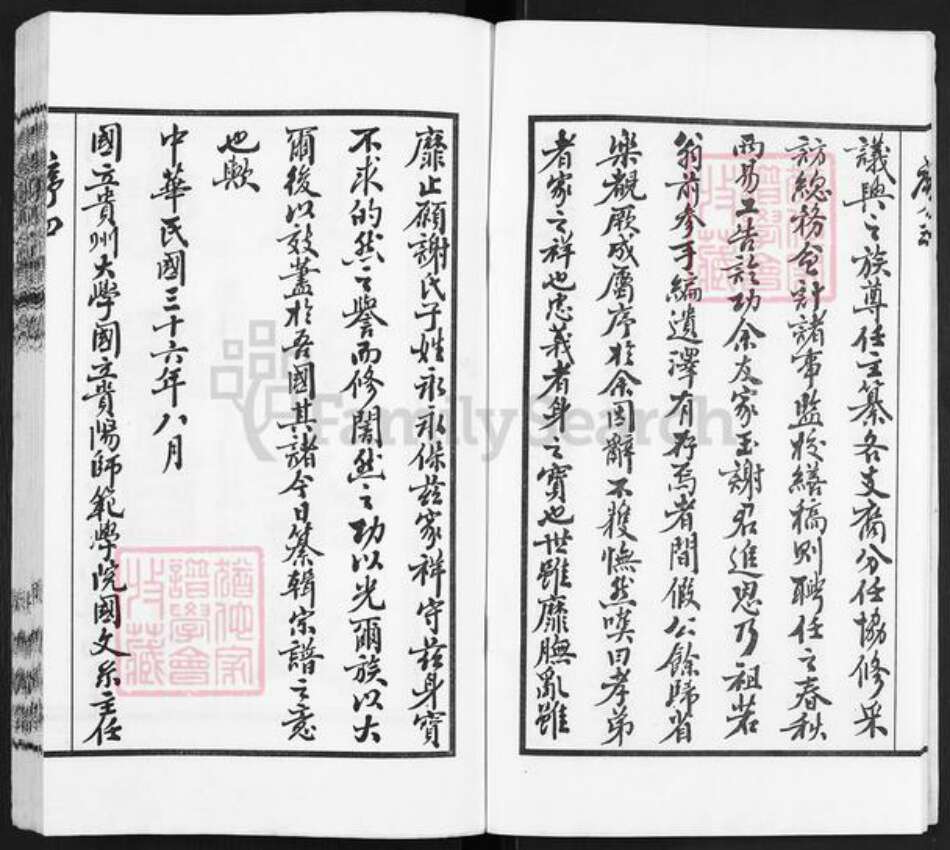 議興之族尊任主纂各支裔分任協修采
訪總務會計諸事監校繕稿則聘任之春秋
兩易工告訖功余友家玉謝君進思乃祖若
翁前參手編遺澤有存焉者間假公餘歸省
樂觀厥成屬序於余固辭不獲憮然嘆曰孝弟
者家之祥也忠義者身之寶也世雖靡膴亂雖
靡止願謝氏子姓永永保茲家祥守茲身寶
不求的然之譽而修闇然之功以光爾族以大
爾後以效藎於吾國其諸今日纂輯宗譜之意
也歟
中華民國三十六年八月
國立貴州大學國立貴陽師範學院國文系主任
序四
FamilySearch
譜學會
收藏